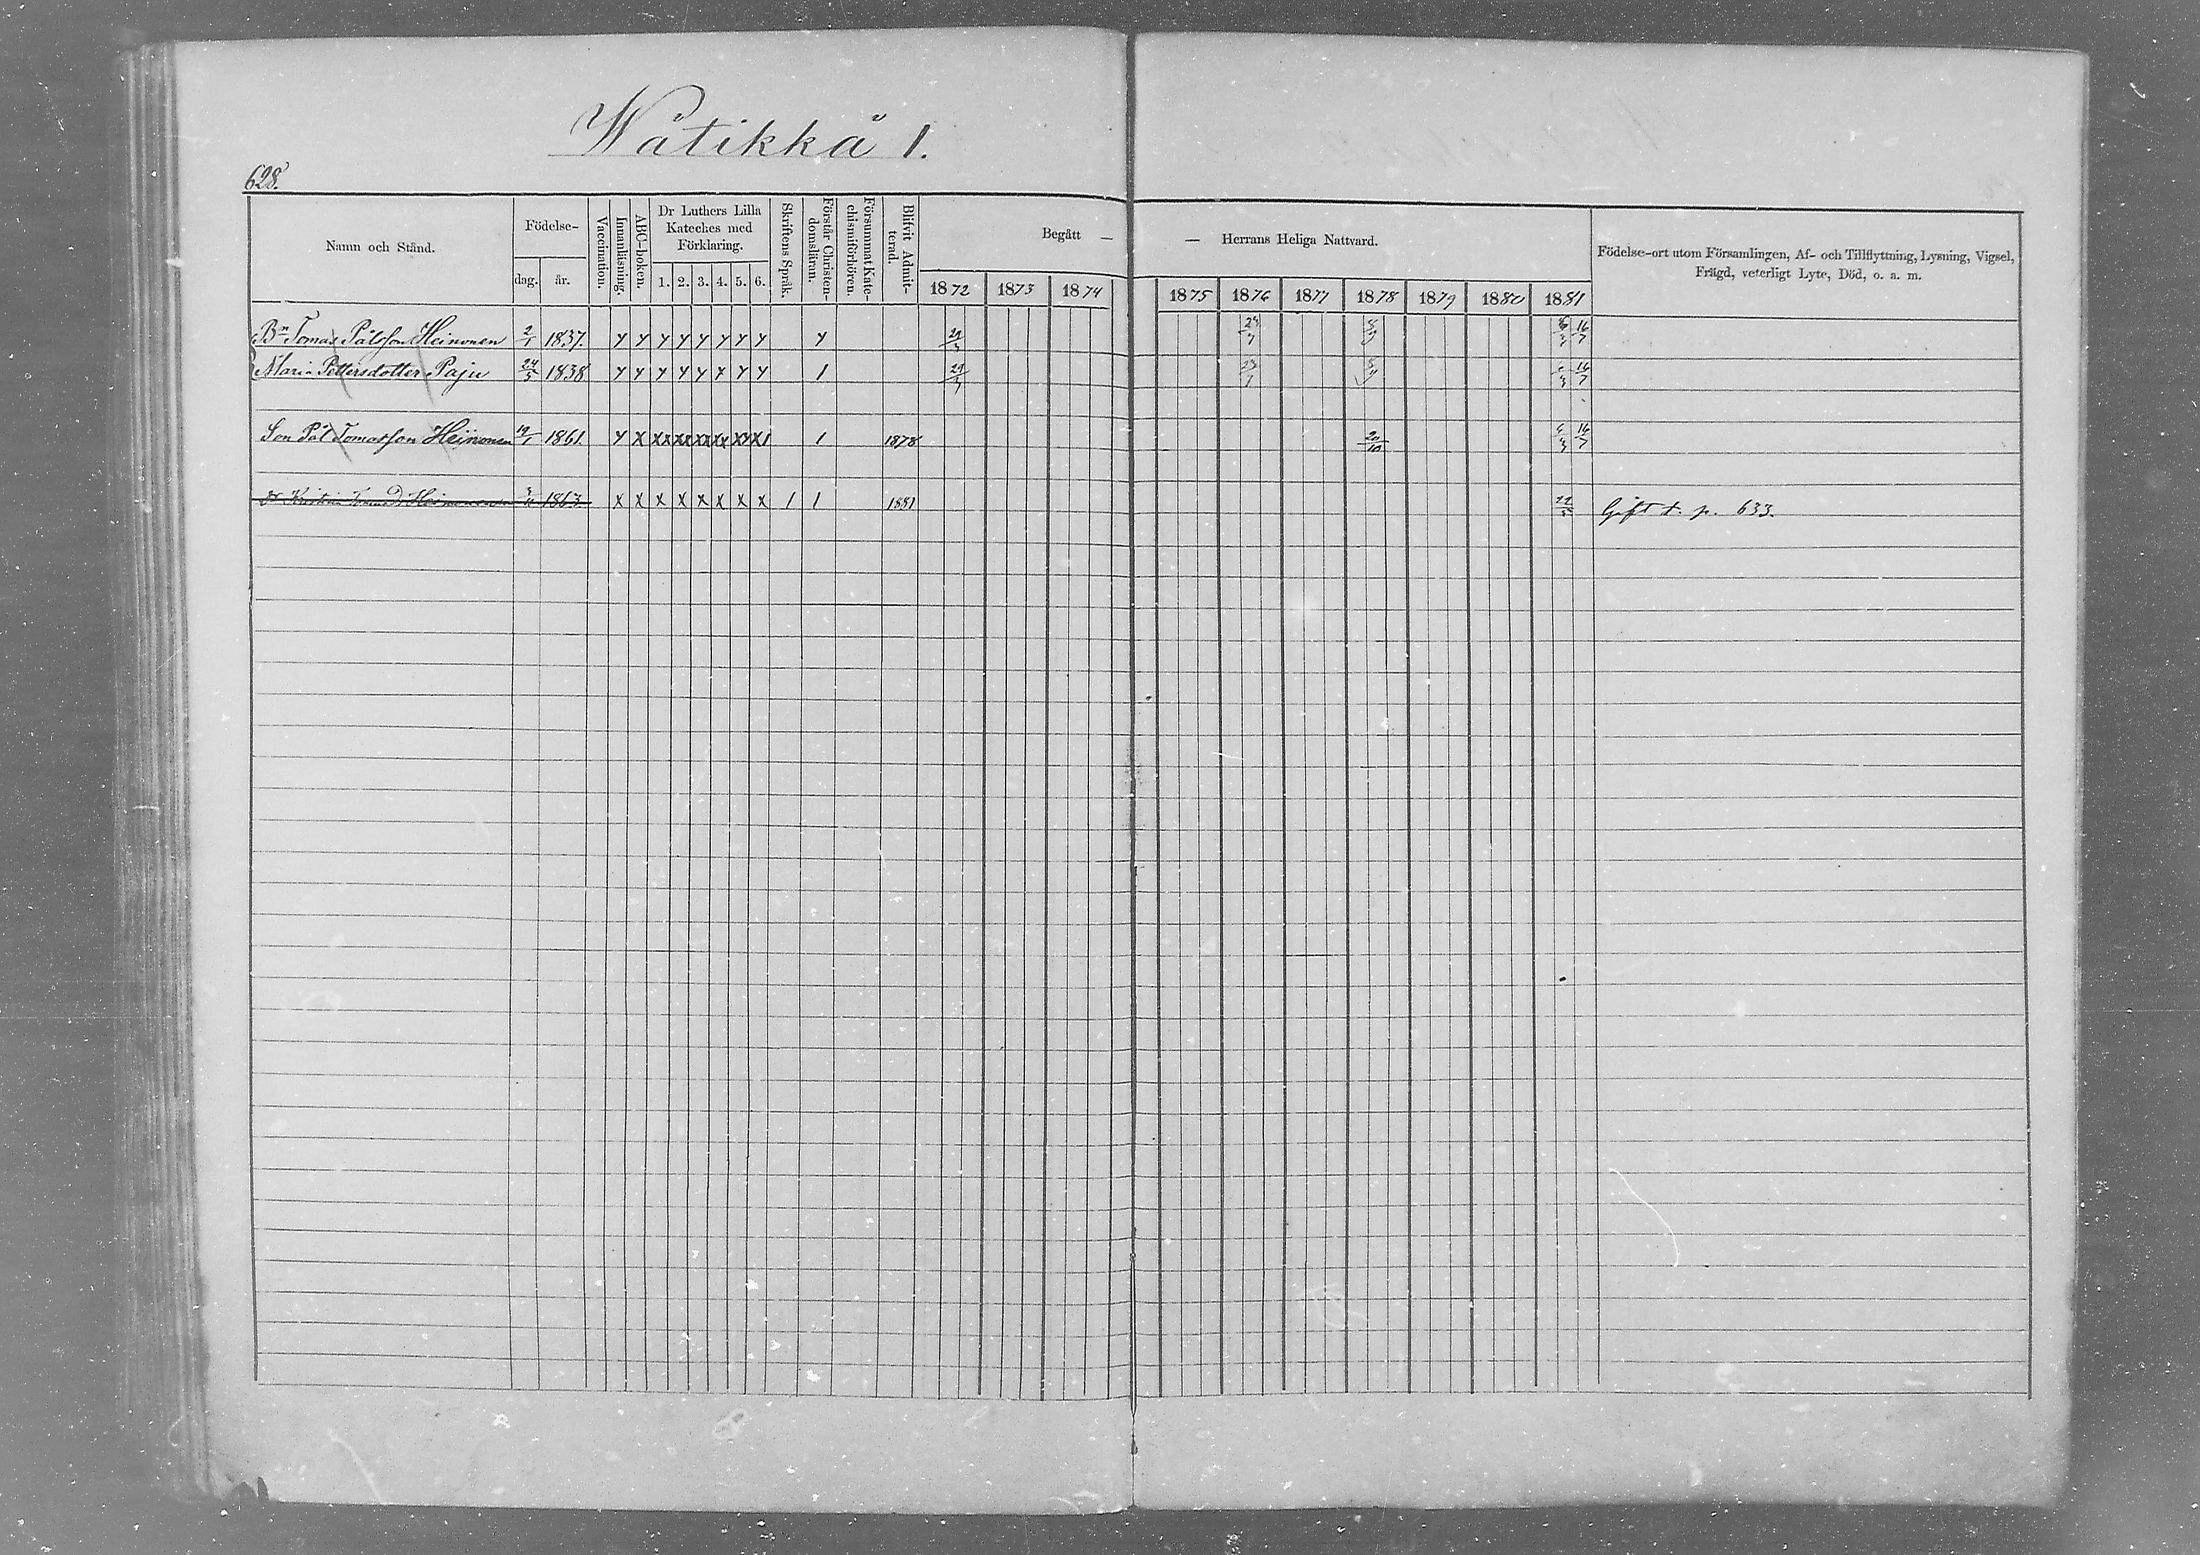 Wätikkä 1.
628.
Namn och Stånd.
Födelse-
dag. år.
Vaccination.
Innanläsning.
ABC-boken.
Dr Luthers Lilla
Kateches med
Förklaring.
1. 2. 3. 4. 5. 6.
Skriftens Språk.
Förstår Christen-
domsläran.
Försummat Kate-
chismiförhören.
Blifvit Admit-
terad.
Begått — — Herrans Heliga Nattvard.
1872 1873 1874 1875 1876 1877 1878 1879 1880 1881
Födelse-ort utom Församlingen, Af- och Tillflyttning, Lysning, Vigsel,
Frägd, veterligt Lyte, Död, o. a. m.
Bn Tomas Pålsson Heinonen 2/1 1837.
Maria Pettersdotter Paju 24/5 1838
Son Pål Tomasson Heinonen 19/1 1861. 1878 20/10
Dr Kristin Heinonen 1863. 1881 Gift t. p. 633.